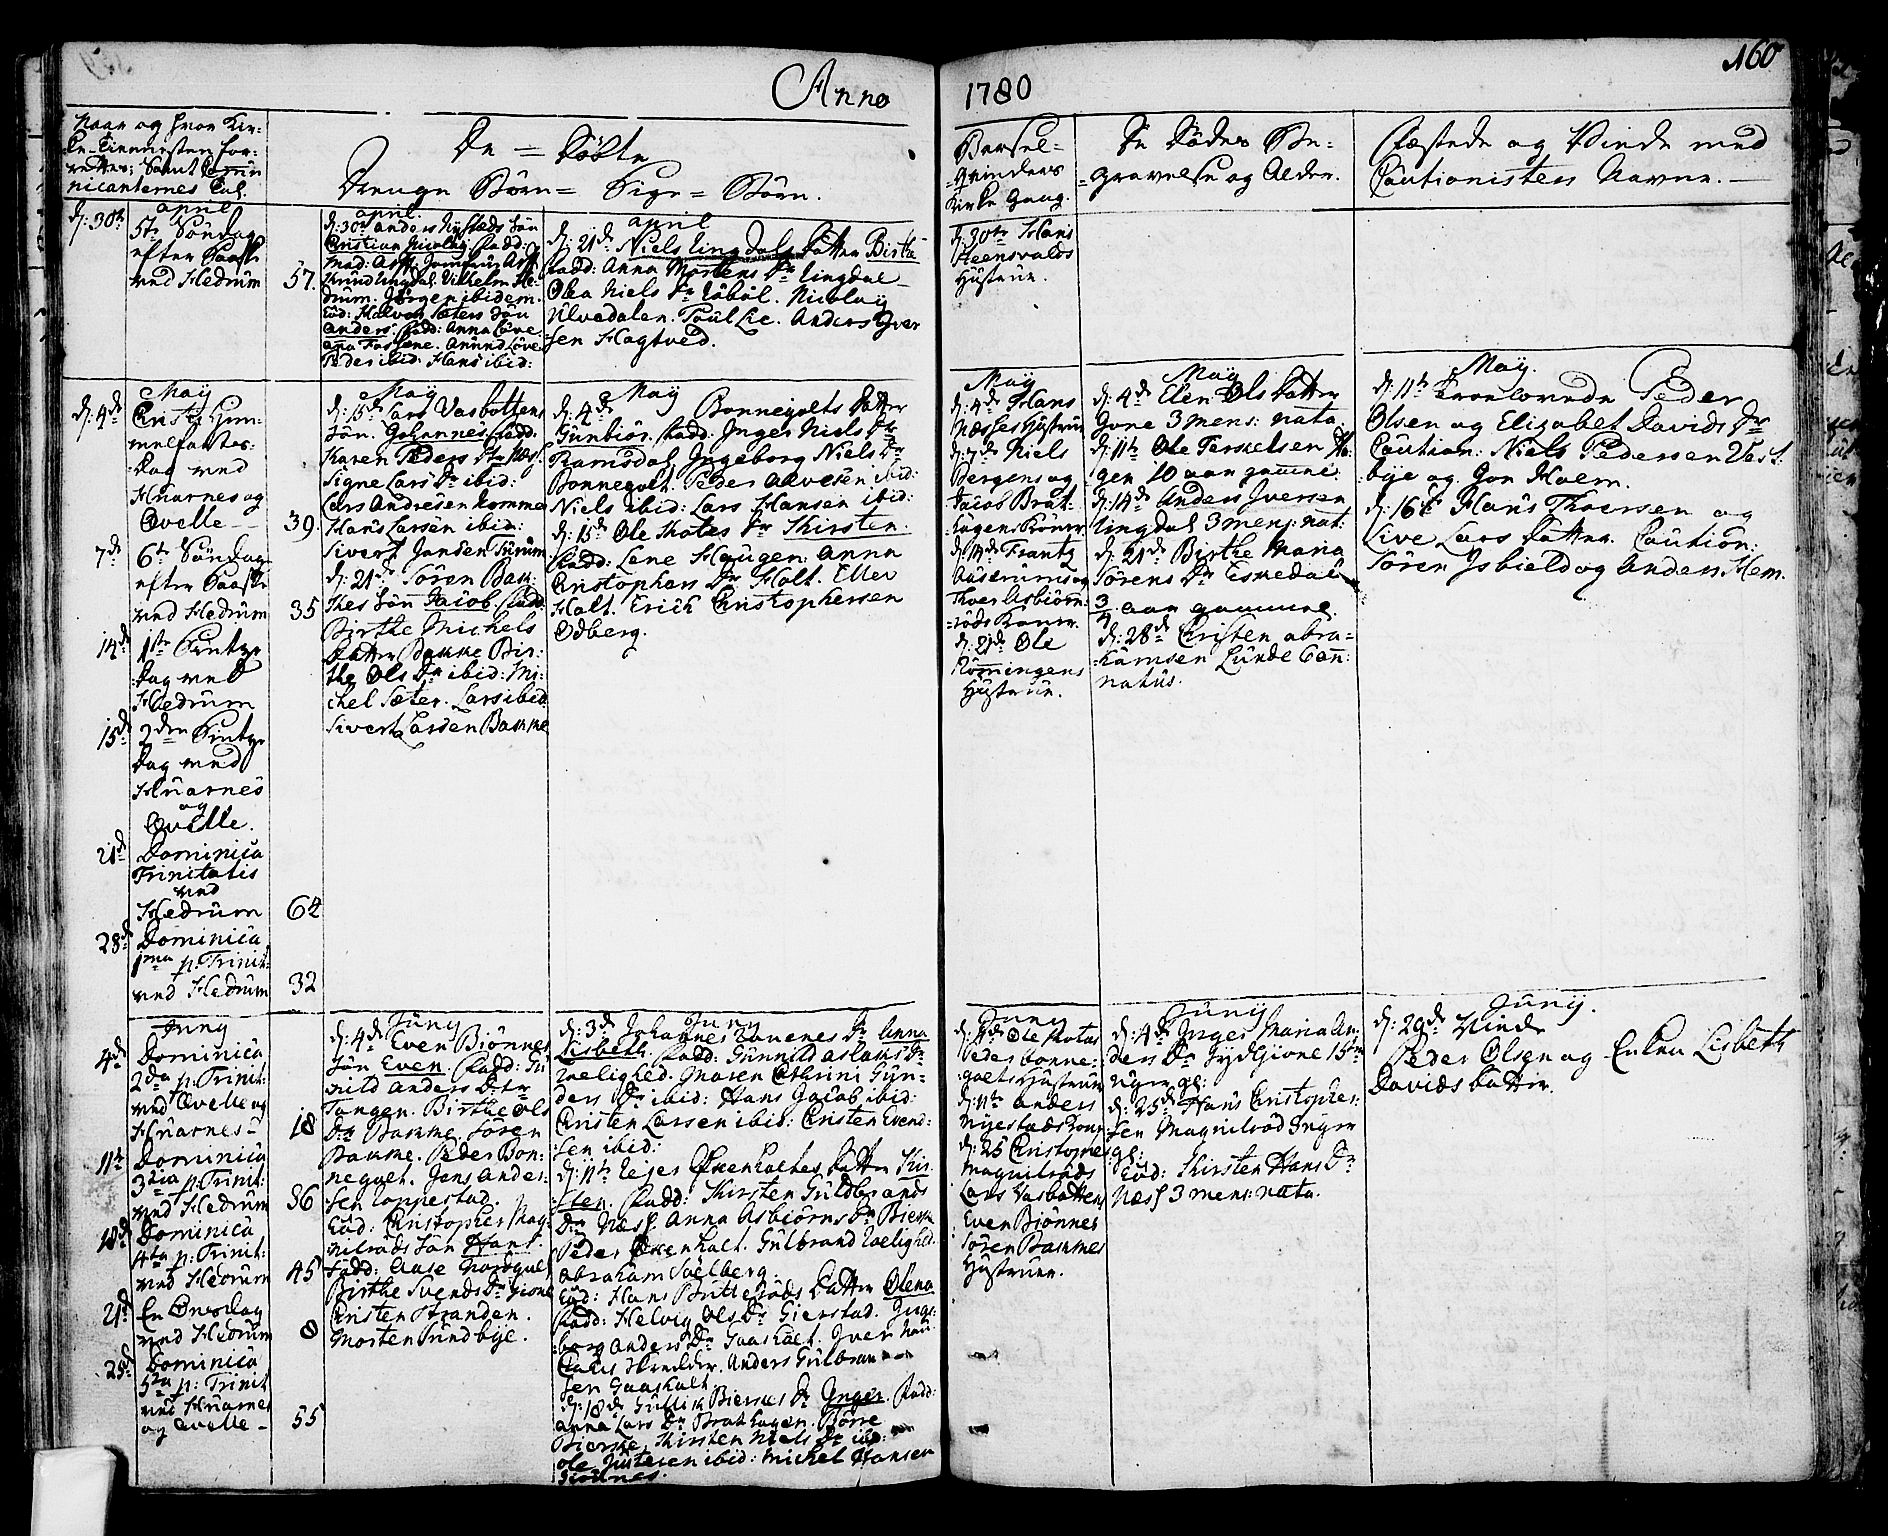 160
Anno
1780
Naar og hvor Kir=
ke-Tiennesten for=
rettes; Samt Comu=
nicanternes Tal.
De = Døbte
Drenge Børn = Pige = Børn.
Barsel=
=qvinders
Kirke Gang.
De Dødes Be=
=gravelse og Alder.
Fæstede og Viede med
Cautionisters Navne.
april
d: 30te
5te Søndag
efter Paaske
ved Hedrum
57.
april.
d: 30te Anders Nystads Søn
Christian Nicolay. Fadd:
Vilhelm He=
drum. Jørgen ibidem.
Eod: Halvor Sæters Søn
Anders. Fadd: Anna Løve
Anna Fossene. Amund Løve
Peder ibid: Hans ibid:
april
d: 21de Niels Lingdals Datter Birte
Fadd: Anna Mortens Dr Lingdal
Olea Niels Dr Nicolay
Ulvedalen. Poul Lie. Anders Iver
=sen Hagtved.
d: 30te Hans
Steensvalds
Hustrue.
May
d: 4de
Christi Him=
melfarts=
Dag ved
Hvarnes og
Qvelle
39.
7de
6te Søndag
efter Paaske
ved Hedrum
35
14de
1ste Pintze
Dag ved
Hedrum
15de
2den Pintze
Dag ved
Hvarnes
og
Qvelle.
21de
Dominica
Trinitatis
ved
Hedrum
64
28de
Dominica
1ma p: Trinit:
ved Hedrum
32
May
d: 15de Lars Vasbottens
Søn. Johannes. Fadd:
Karen Peders Dtr Næss.
Signe Lars Dr ibid:
Lars Andresen Komme
Hans Larsen ibid:
Sivert Jansen Furum
d: 21de Søren Bam=
=kes Søn Jacob Fadd:
Birthe Michels
Datter Bamke Bir=
the Ols Dr ibid: Mi=
chel Sæter. Lars ibid
Sivert Larsen Bamke
May
d: 4de Bonnegolts Datter
Gunbiør. Fadd: Inger Niels Dr
Ramsdal Ingeborg Niels Dr
Bonnegolt Peder Alvesen ibid:
Niels ibid: Lars Hansen ibid:
d: 15de Ole Skotes Dr Kirsten.
Fadd: Lene Haugen Anna
Christophers Dr Holt. Ellev
Holt. Erich Christophersen
Odberg.
May
d: 4de Hans
Næsses Hustrue
d: 7de Niels
Bergens og
Jacob Brat=
hagens Koner.
d: 14de Frantz
og
Thor Asbiørn=
=røds Koner.
d: 21de Ole
Rønningens
Hustrue.
May
d: 4de Elen Ols Datter
Gone 3 mens: nata.
d: 11te Ole Terkelsen Ha=
gen 10 aar gamel
d: 14de Anders Iversen
Lingdal 3 mens: nat:
d: 21de Birthe Maria
Sørens Dr Eskedal
3/4 aar gammel.
d: 28de Christen Abra=
=hamsen Lunde
natus.
May.
d: 11te Troelovede Peder
Olsen og Elizabet Davids Dr
Caution: Niels Pedersen Vest=
bye og Jon Moem.
d: 16de Hans Thorsen og
Live Lars Datter. Caution:
Søren Isbield og Anders Hem.
Juny
4de
Dominica
2da p: Trinit:
ved Qvelle og
Hvarnes
18
11te
Dominica
3tia p: Trinit:
ved Hedrum
86
18de
Dominica
4ta p: Trinit:
ved Hedrum
45
21de
En Onsdag
ved Hedrum
8
25de
Dominica
5ta p: Trinit
ved Hvarnes
og Qvelle
55
Juny
d: 4de Even Biønnes
Søn Even. Fadd: Gu
nild Anders Dtr
Tangen. Birthe Ols
Dr Bamke Søren
Bamke. Peder Bon=
negolt. Jens Ander=
sen Loppestad.
Eod: Christopher Mag=
nilrøds Søn Hans.
Fadd: Aase Nordqvel
Birthe Svends Dr Gione
Christen Stranden.
Morten Sundbye.
Juny
d: 3de Johannes Dr Anna
Lisbeth. Fadd: Gunnild Aslaks Dr
Vælighed. Maren Cathrini Gun=
ders Dr ibid: Hans Jacob ibid:
Christen Larsen ibid: Christen Evend=
sen ibid:
d: 11te Leges Øxenholtes Datter Kir=
sten. Fadd: Kirsten Guldbrands
Dr Næss. Anna Asbiørns Dr Bierke
Peder Øxenholt. Gulbrand Vælighed.
Abraham Soelberg.
Eod: Hans Datter Olena
Fadd: Helvig Ols Dr Gierstad. Inge=
borg Anders Dr Gaasholt. Iver
Anders Gulbran
sen Gaasholt.
d: 18de Gullik Bierkes Dr Inger. Fadd:
Anna Lars Dr Brathagen. Børre
Bierke, Kirsten Niels Dr ibid:
Ole ibid: Michel Hansen
Juny
d: 4de Ole Skotes
Peder Bonne=
golts Hustrue
d: 11te Anders
Nyestads Kone
d: 25 Christopher
Magnilrøds
Lars Vasbottens
Even Biønnes
Søren Bamkes
Hustruer.
Juny
d: 4de Inger Maria An=
ders Dr Gione 15ten
Uger gl:
d: 25de Hans Christopher=
sen Magnilrød 3 Uger
gl:
Eod: Kirsten Hans Dr
Næss 3 mens: nata.
Juny.
d: 29de Viede
Peder Olsen og Enken Lisbeth
Davids Datter.